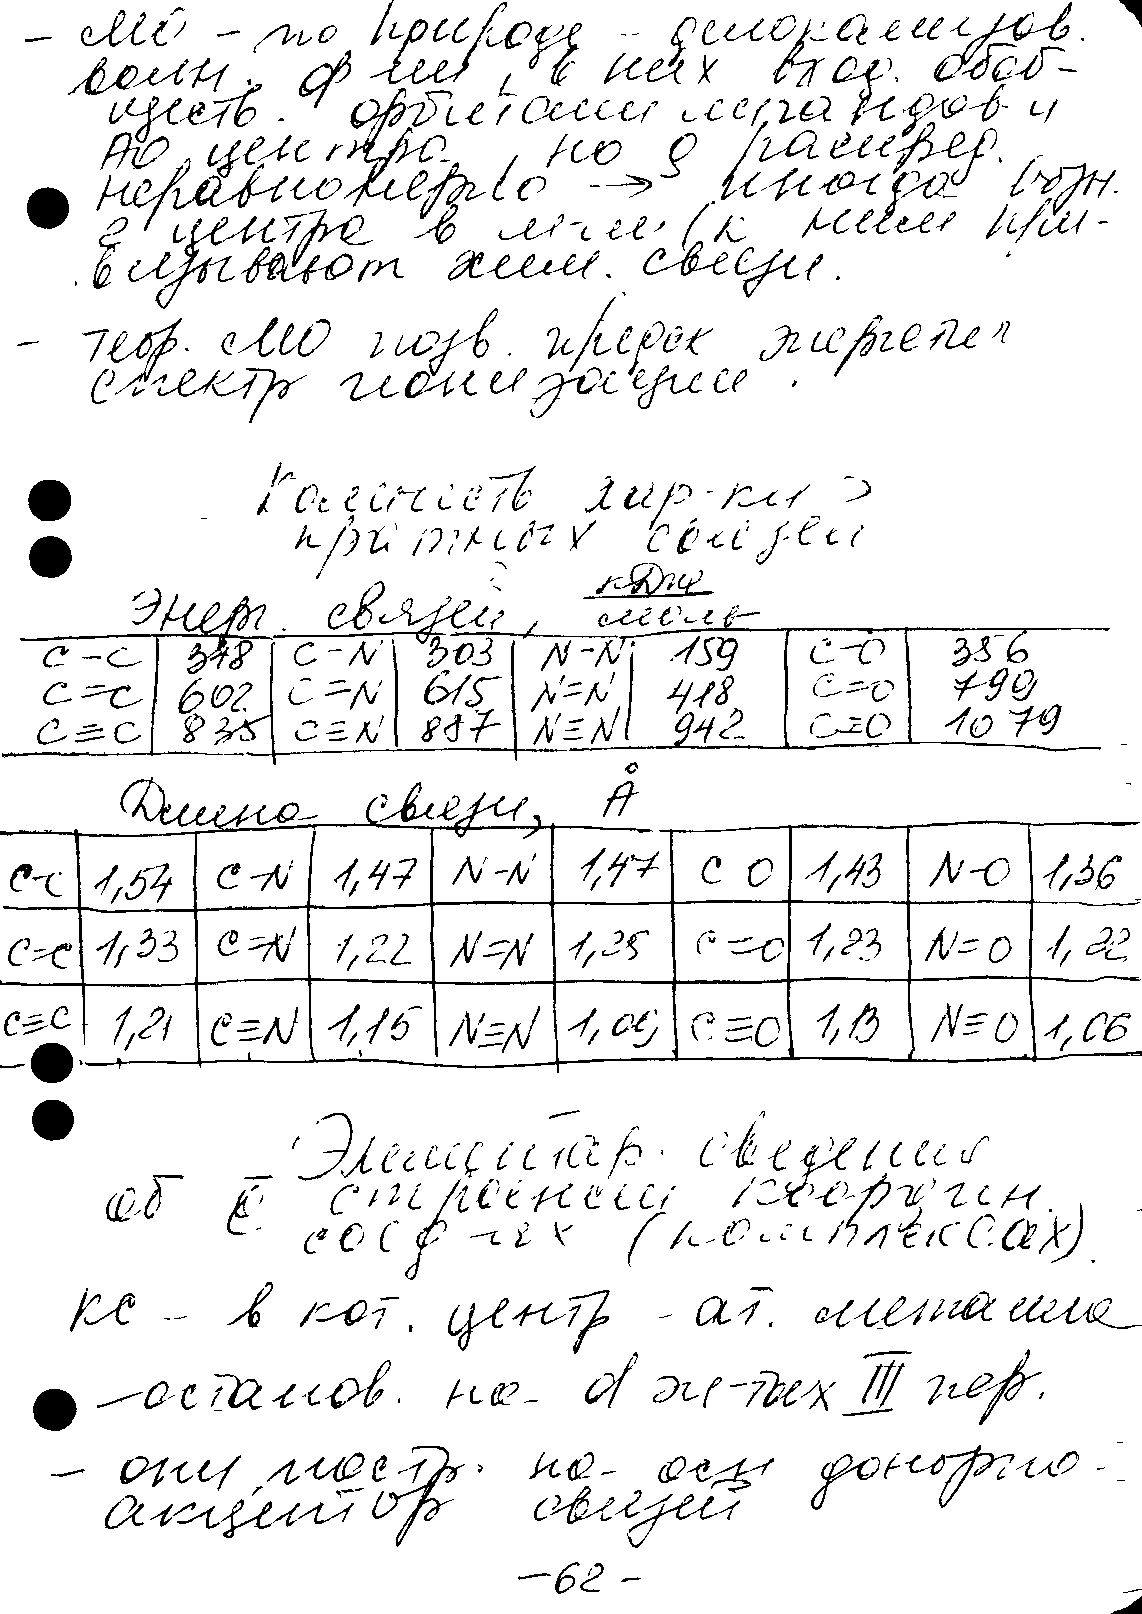 – МО – по природе – делокализов.
волн. ф-ции, в них вход. обоб-
ществ. орбитали лигандов и
АО центра, но ρ распред.
неравномерно → иногда возн.
2 центра в м-ле (к ним при-
вязывают хим. связи.
– теор. МО позв. предск энергетич
спектр ионизации.
хар-ки
кратных связей
Энерг. связей, кДж/моль
C–C 348 C–N 303 N–N 159 C–O 356
C=C 602 C=N 615 N=N 418 C=O 799
C≡C 835 C≡N 887 N≡N 942 C≡O 1079
Длина связи, Å
C-C 1,54 C-N 1,47 N-N 1,47 C O 1,43 N-O 1,36
C=C 1,33 C=N 1,22 N=N 1,25 C=O 1,23 N=O 1,22
C≡C 1,21 C≡N 1,15 N≡N 1,09 C≡O 1,13 N≡O 1,06
Элементар. сведения
об строении координ.
соед-иях (комплексах)
КС – в кот. центр – ат. металла
– останов. на d эл-тах III пер.
– они постр. на осн донорно-
акцептор связей
–62–